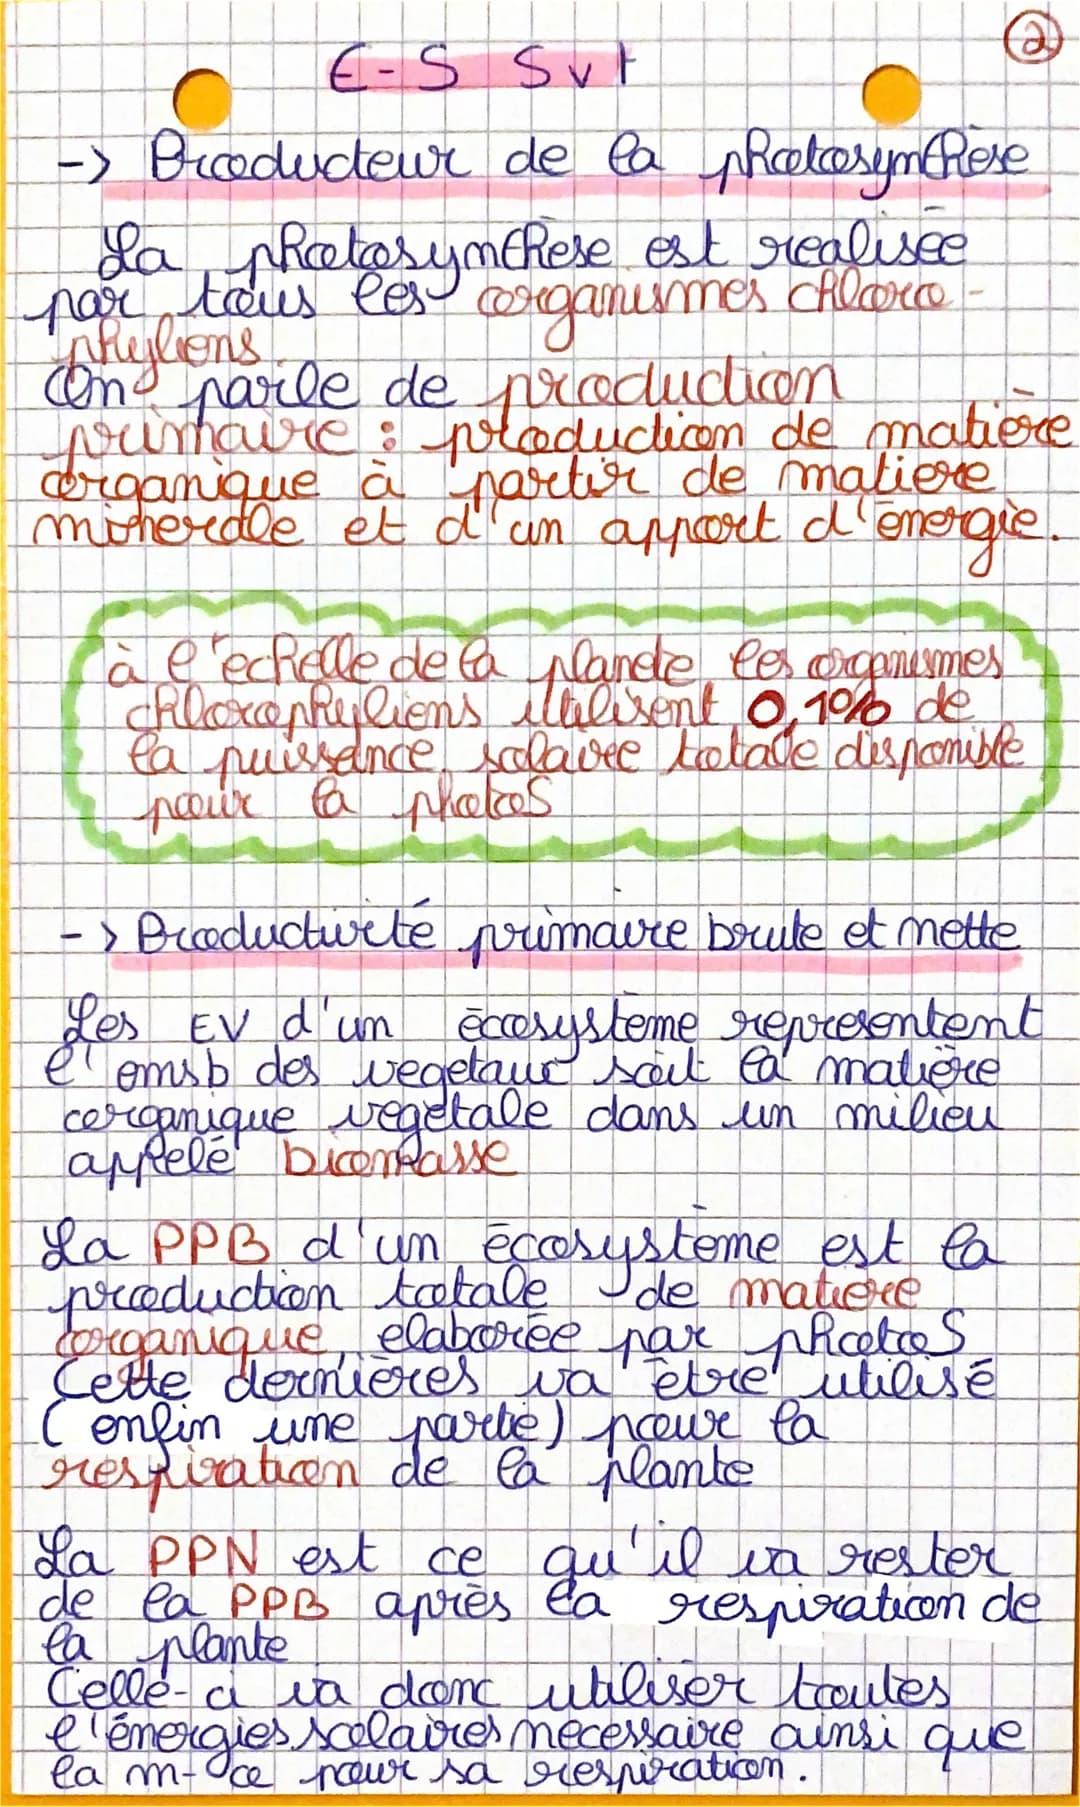 2
E-S Svt
-> Producteur de la photosynthèse
La photosynthèse est realisée
par tous les organismes chloro-
phyliens.
On parle de production
primaire : production de matière
organique à partir de matiere
minerale et d'un apport d'énergie.
à l'echelle de la planete les organismes
chlorophyliens utilisent 0,1% de
la puissance solaire totale disponible
pour la photoS
-> Productivité primaire brute et nette
Les EV d'un écosystème representent
l'emsb des vegetaux soit la matière
organique vegétale dans un milieu
appelé biomasse
La PPB d'un écosystème est la
production totale de matiere
organique elaborée par photoS
Cette dernières va être utilisé
(enfin une partie) pour la
respiration de la plante
La PPN est ce qu'il va rester
de la PPB après la respiration de
la plante
Celle-ci va donc utiliser toutes
l'énergies solaires necessaire ainsi que
la m-ce pour sa respiration.